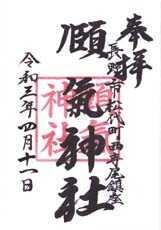 奉拝
長野市松代町西寺尾鎮座
頤氣神社
頤氣神社
令和三年四月十一日